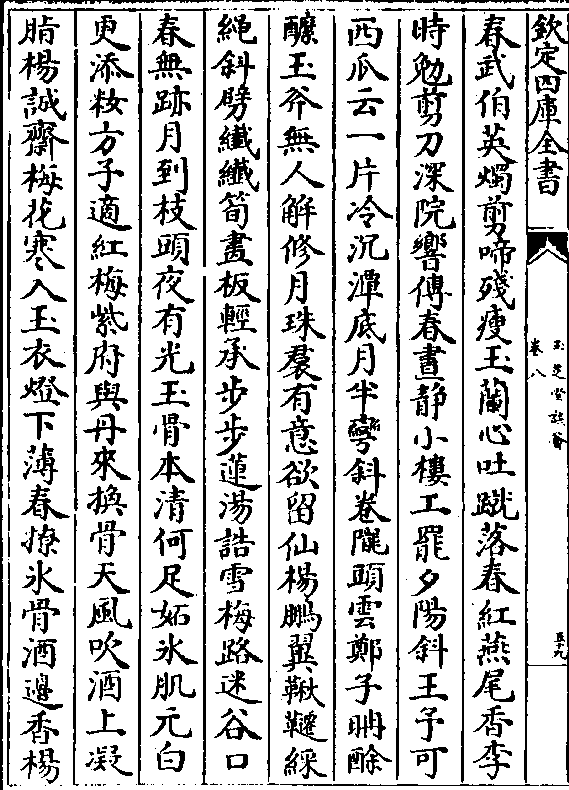 欽定四庫全書
玉芝堂談薈
卷八
五十九
春武伯英燭剪啼殘瘦玉蘭心吐蹴落春紅燕尾香李
時勉剪刀深院響傳春晝靜小樓工罷夕陽斜王予可
西瓜云一片冷沉潭底月半彎斜卷隴頭雲鄭子聃酴
醾玉斧無人解修月珠裙有意欲留仙楊鵬翼鞦韆綵
繩斜劈纎纎筍畫板輕承步步蓮湯誥雪梅路迷谷口
春無跡月到枝頭夜有光玉骨本清何足妬氷肌元白
更添粧方子適紅梅紫府與丹來換骨天風吹酒上凝
脂楊誠齋梅花寒入玉衣燈下薄春撩氷骨酒邊香楊